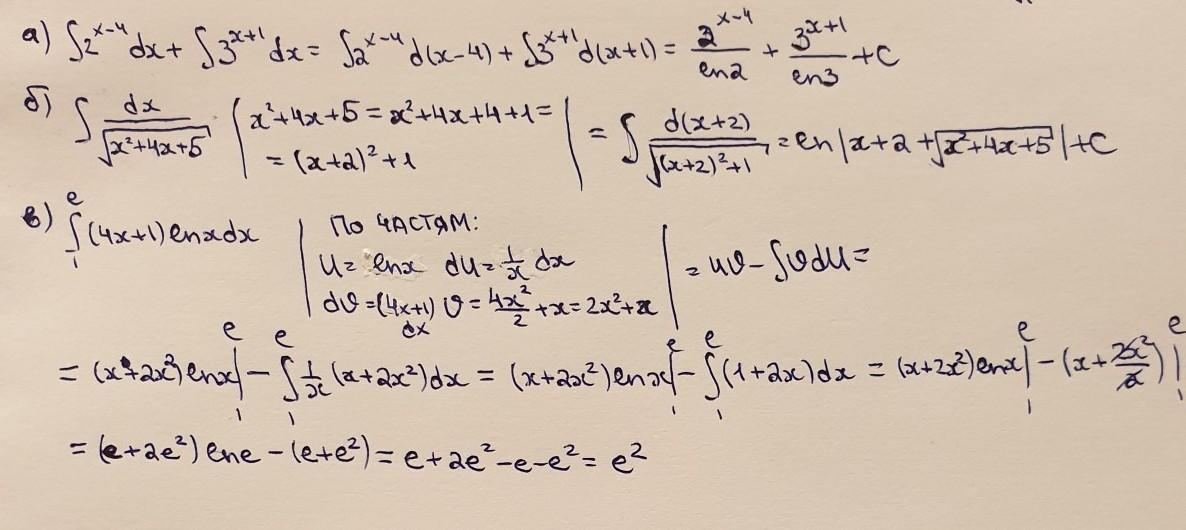 а) ∫2^(x-4) dx + ∫3^(x+1) dx = ∫2^(x-4) d(x-4) + ∫3^(x+1) d(x+1) = 2^(x-4)/ln2 + 3^(x+1)/ln3 + C
б) ∫ dx/√(x²+4x+5) | x²+4x+5 = x²+4x+4+1 = = (x+2)²+1 | = ∫ d(x+2)/√((x+2)²+1) = ln|x+2+√(x²+4x+5)|+C
в) ∫₁^e (4x+1) lnx dx | По частям:
u = lnx du = 1/x dx | = uv - ∫v du =
dv = (4x+1) dx v = 4x²/2 + x = 2x²+x
= (x+2x²) lnx|₁^e - ∫₁^e 1/x (x+2x²) dx = (x+2x²) lnx|₁^e - ∫₁^e (1+2x) dx = (x+2x²) lnx|₁^e - (x+2x²/2)|₁^e
= (e+2e²) lne - (e+e²) = e+2e²-e-e² = e²